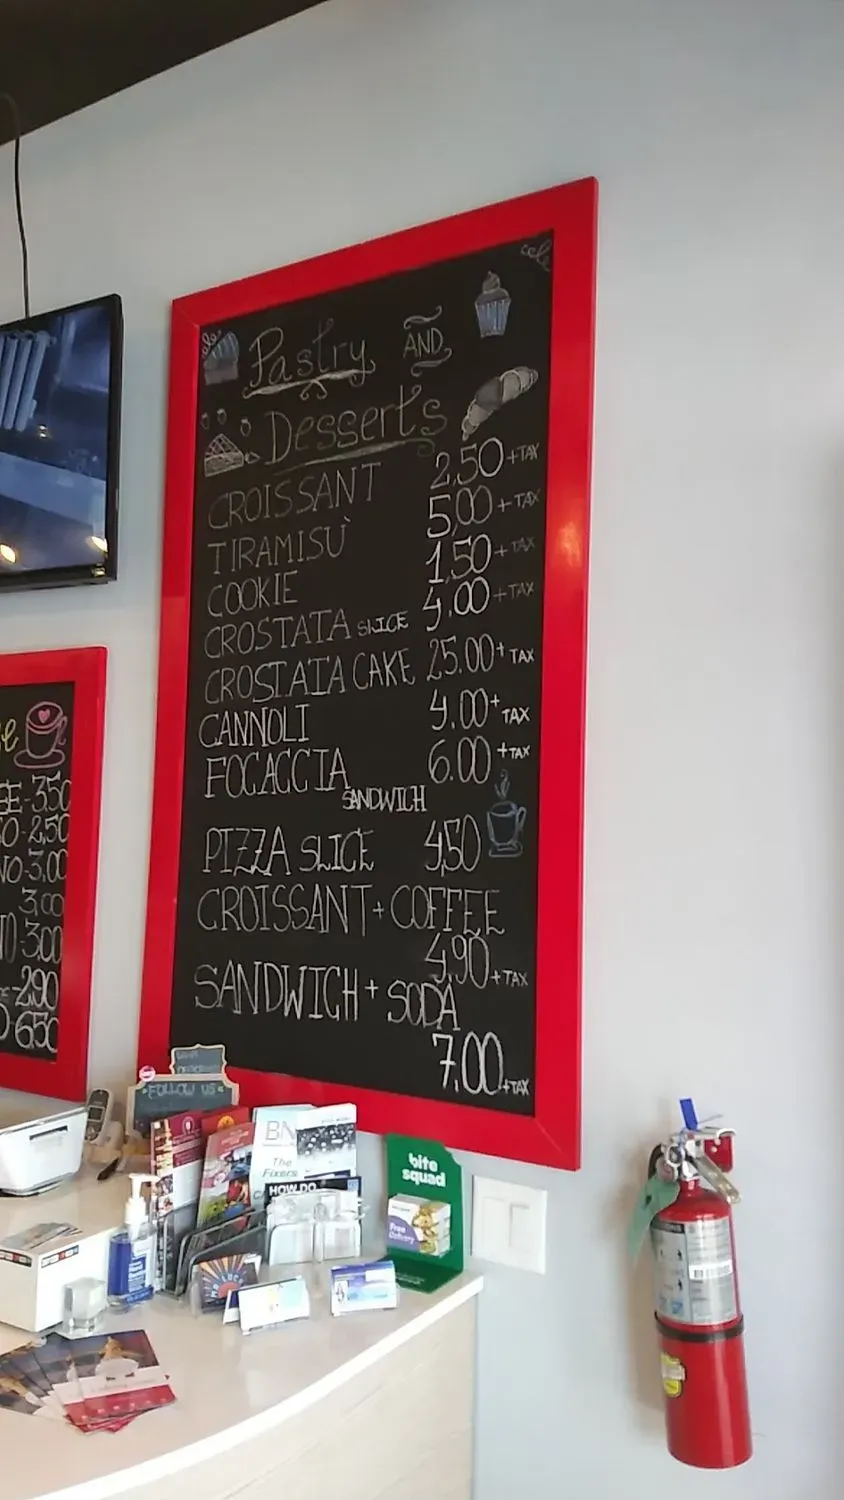 Pastry AND
Desserts
CROISSANT 2,50 + TAX
TIRAMISÙ 5,00 + TAX
COOKIE 1,50 + TAX
CROSTATA SLICE 4,00 + TAX
CROSTATA CAKE 25.00 + TAX
CANNOLI 4.00 + TAX
FOCACCIA 6.00 + TAX
SANDWICH
PIZZA SLICE 4,50
CROISSANT + COFFEE
4,90 + TAX
SANDWICH + SODA
7,00 + TAX
3,50
2,50
NO-3,00
3,00
3,00
2,90
6,50
FOLLOW US
BN
The
Fixers
HOW DO
bite
squad
Free
Delivery